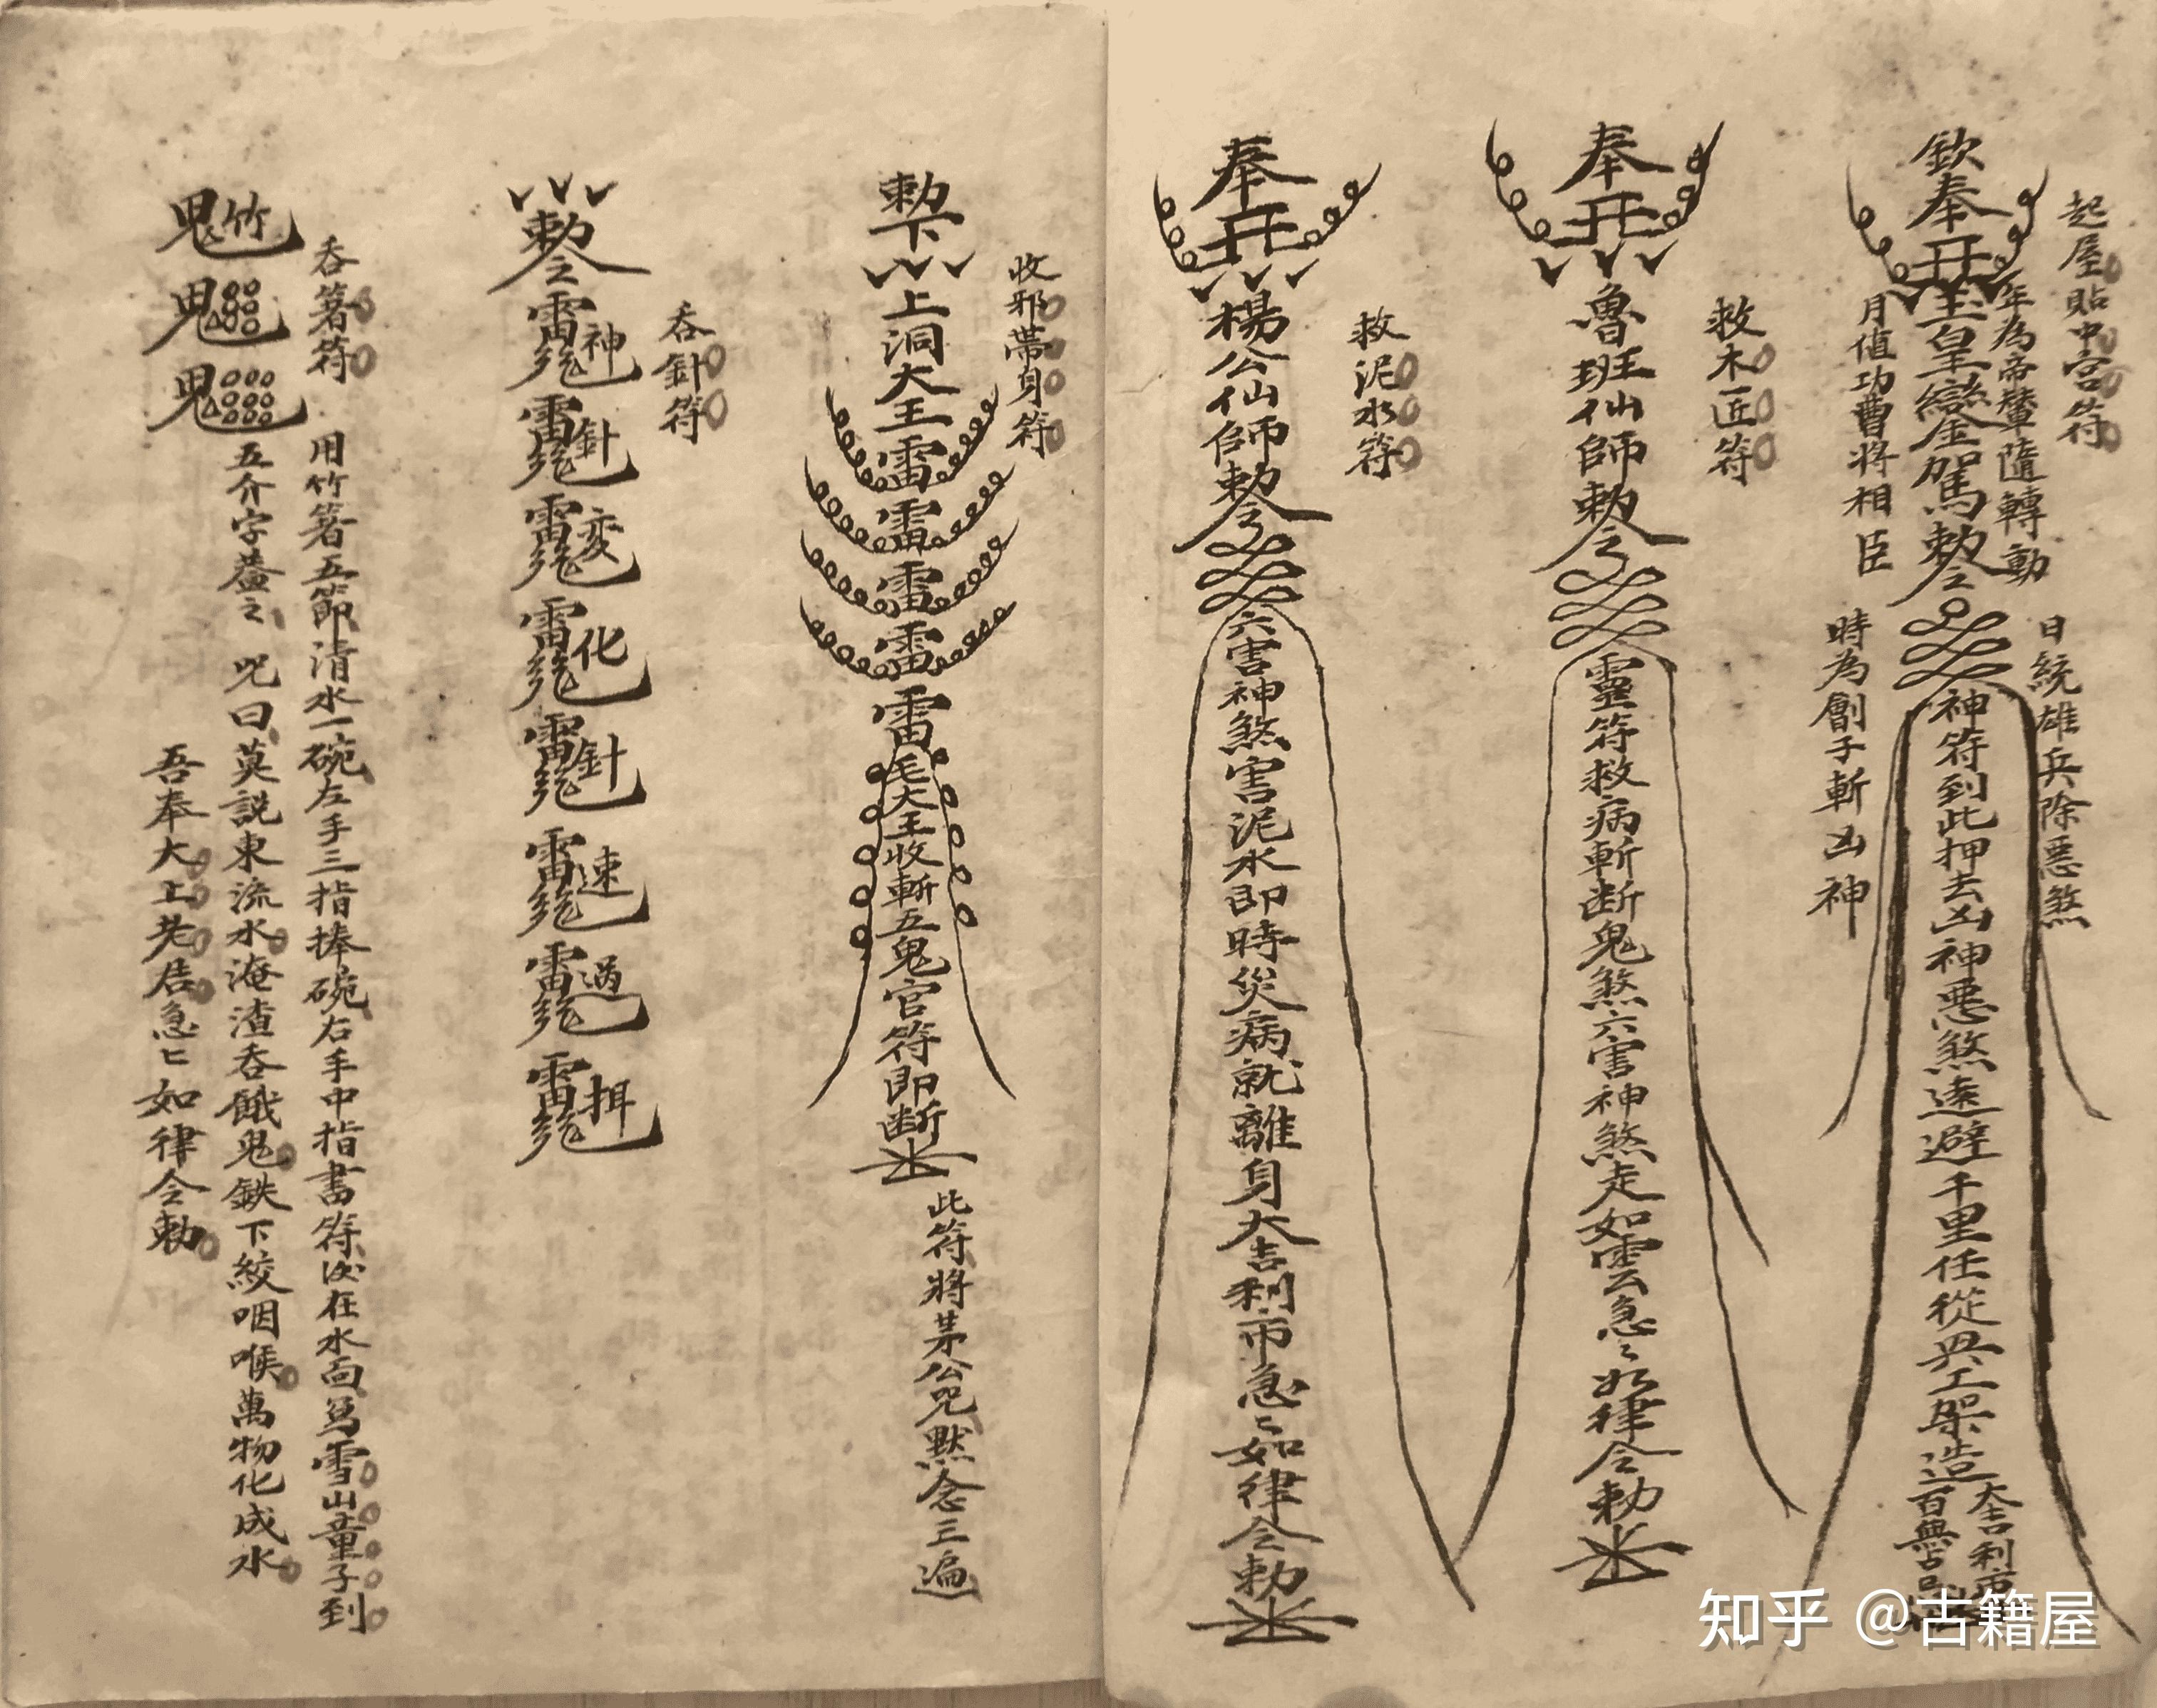 起屋貼中宮符
年為帝輦隨轉動
日統雄兵除惡煞
欽奉
玉皇鑾駕敕令
神符到此押去凶神惡煞遠避千里任從興工架造
大吉利市
百無
月值功曹將相臣
時為劊子斬凶神
救木匠符
奉
魯班仙師敕令
靈符救病斬断鬼煞六害神煞走如雲急〻如律令勅
救泥水符
奉
楊公仙師敕令
六害神煞害泥水即時災病就離身大吉利市急〻如律令勅
收邪帶身符
勅下
上洞大王雷雷雷雷雷
毛大王收斬五鬼官符即断
此符將茅公咒默念三遍
吞針符
敕令
神
針
変
化
針
速
過
吞箸符
用竹箸五節清水一碗左手三指捧碗右手中指書符後在水面写雪山童子到
五个字盖之 咒曰莫説東流水淹渣吞餓鬼鉄下絞咽喉萬物化成水
吾奉太上老君急〻如律令勅
知乎 @古籍屋